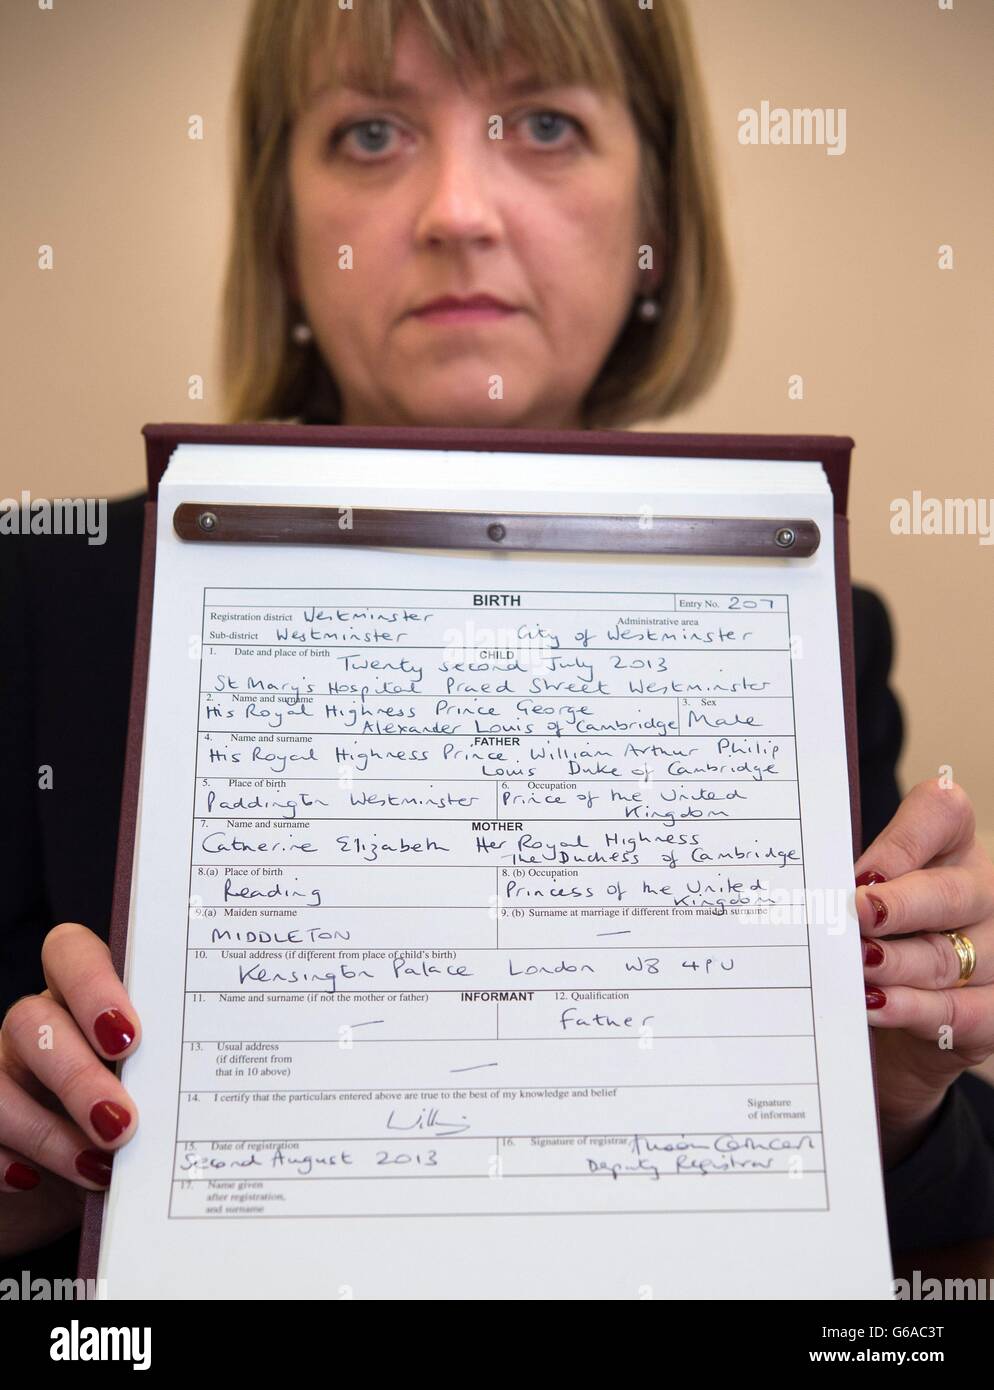 BIRTH Entry No. 207
Registration district Westminster Administrative area
Sub-district Westminster City of Westminster
1. Date and place of birth CHILD
Twenty second July 2013
St Mary's Hospital Praed Street Westminster
2. Name and surname 3. Sex
His Royal Highness Prince George
Alexander Louis of Cambridge Male
4. Name and surname FATHER
His Royal Highness Prince William Arthur Philip
Louis Duke of Cambridge
5. Place of birth 6. Occupation
Paddington Westminster Prince of the United
Kingdom
7. Name and surname MOTHER
Catherine Elizabeth Her Royal Highness
The Duchess of Cambridge
8.(a) Place of birth 8. (b) Occupation
Reading Princess of the United
Kingdom
9.(a) Maiden surname 9. (b) Surname at marriage if different from maiden surname
MIDDLETON —
10. Usual address (if different from place of child's birth)
Kensington Palace London W8 4PU
11. Name and surname (if not the mother or father) INFORMANT 12. Qualification
— Father
13. Usual address
(if different from
that in 10 above) —
14. I certify that the particulars entered above are true to the best of my knowledge and belief
William Signature
of informant
15. Date of registration 16. Signature of registrar
Second August 2013 Deputy Registrar
17. Name given
after registration,
and surname
alamy
alamy
alamy
alamy
a a a a a a a a a a
alamy
Image ID: G6AC3T
www.alamy.com